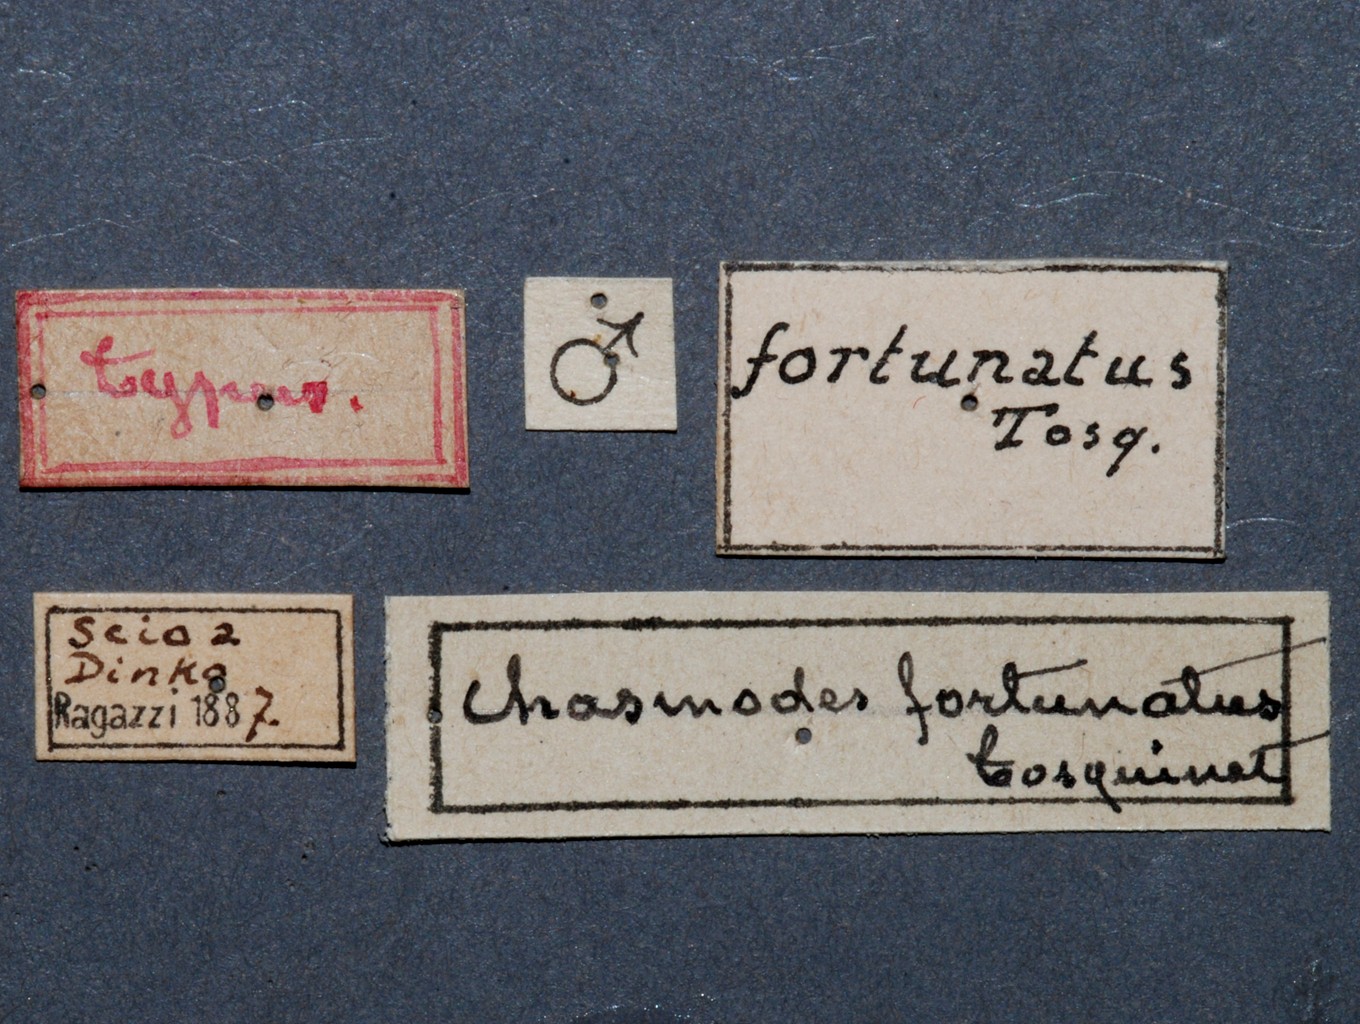 typus.
♂
fortunatus
Tosq.
Scioa
Dinka
Ragazzi 1887.
Chasmodes fortunatus
tosquinet